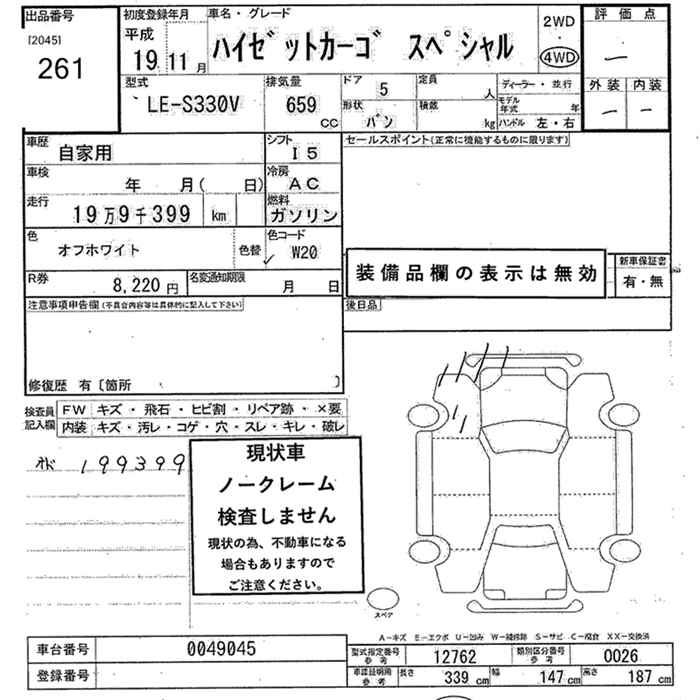 出品番号
[2045]
261
初度登録年月
平成
19 11 月
車名・グレード
ハイゼットカーゴ スペシャル
2WD
・
4WD
評価点
―
外装 内装
― ―
型式
LE-S330V
排気量
659
CC
ドア
5
形状
バン
定員
人
積載
kg
ディーラー・並行
モデル年式 年
ハンドル 左・右
車歴
自家用
シフト
I5
車検
年 月( 日)
冷房
AC
走行
19万9千399 km
燃料
ガソリン
色
オフホワイト
色替
色コード
W20
R券
8,220 円
名変通知期限
月 日
セールスポイント(正常に機能するものに限ります)
装備品欄の表示は無効
新車保証書
有・無
注意事項申告欄(不具合内容等は具体的に記入して下さい)
後日品
修復歴 有〔箇所 〕
検査員記入欄
FW キズ・飛石・ヒビ割・リペア跡・×要
内装 キズ・汚レ・コゲ・穴・スレ・キレ・破レ
199399
現状車
ノークレーム
検査しません
現状の為、不動車になる
場合もありますので
ご注意ください。
スペア
A−キズ E−エクボ U−凹み W−補修跡 S−サビ C−腐食 XX−交換済
車台番号 0049045
登録番号
型式指定番号参考 12762 類別区分番号参考 0026
車両証明用参考 長さ 339 cm 幅 147 cm 高さ 187 cm